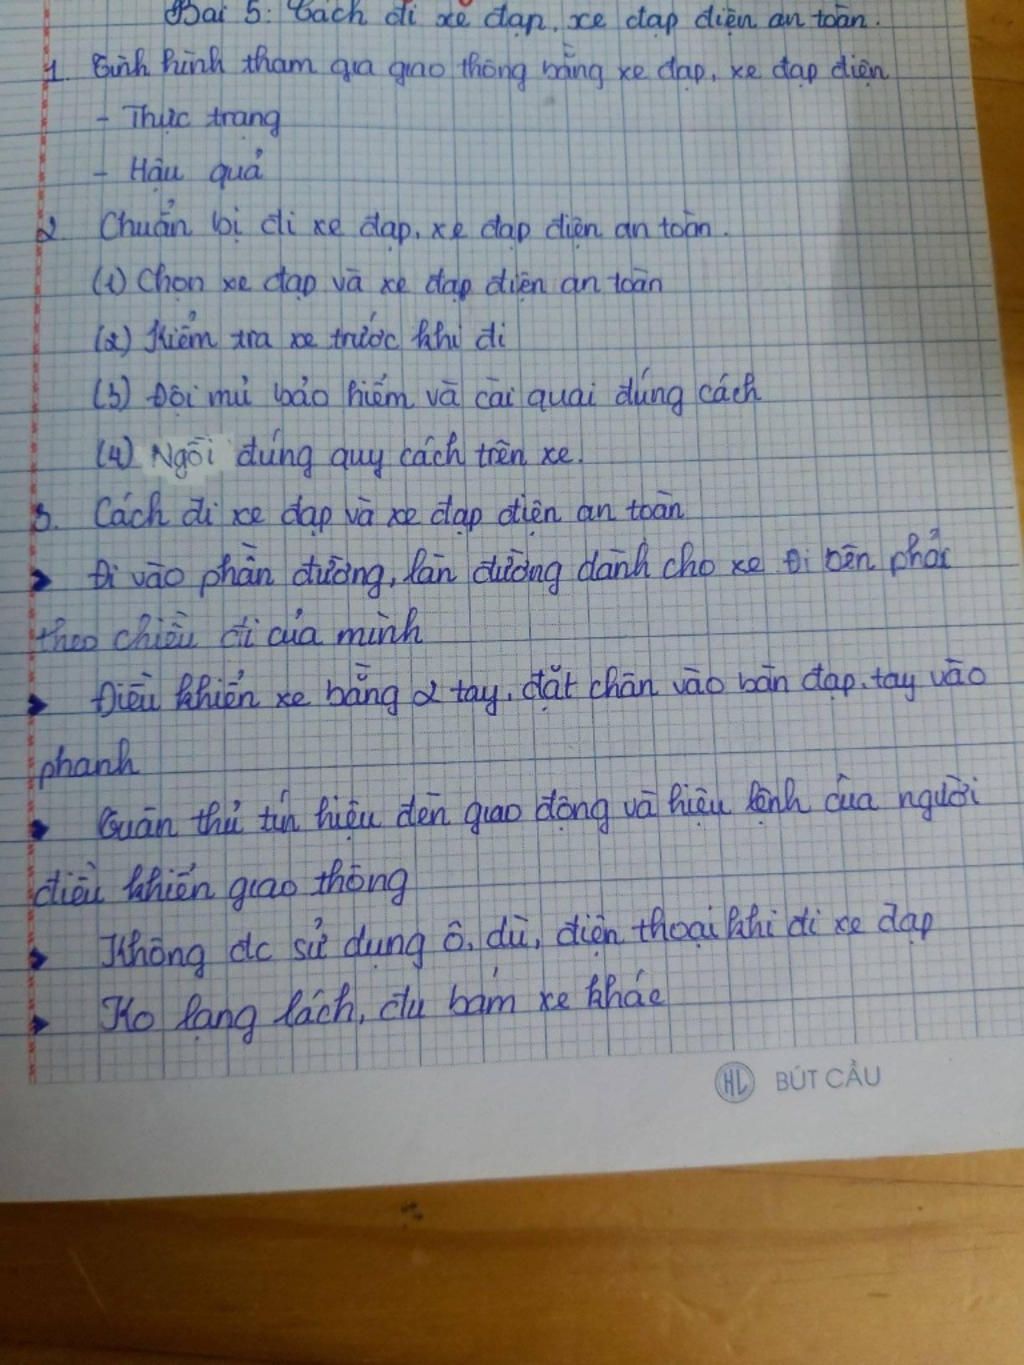 Bài 5: Cách đi xe đạp, xe đạp điện an toàn.
1. Tình hình tham gia giao thông bằng xe đạp, xe đạp điện
- Thực trạng
- Hậu quả
2. Chuẩn bị đi xe đạp, xe đạp điện an toàn.
(1) Chọn xe đạp và xe đạp điện an toàn
(2) Kiểm tra xe trước khi đi
(3) Đội mũ bảo hiểm và cài quai đúng cách
(4) Ngồi đúng quy cách trên xe.
3. Cách đi xe đạp và xe đạp điện an toàn
Đi vào phần đường, làn đường dành cho xe Đi bên phải
theo chiều đi của mình
Điều khiển xe bằng 2 tay, đặt chân vào bàn đạp, tay vào
phanh
Tuân thủ tín hiệu đèn giao động và hiệu lệnh của người
điều khiển giao thông
Không dc sử dụng ô, dù, điện thoại khi đi xe đạp
Ko lạng lách, đu bám xe khác
HL BÚT CẦU